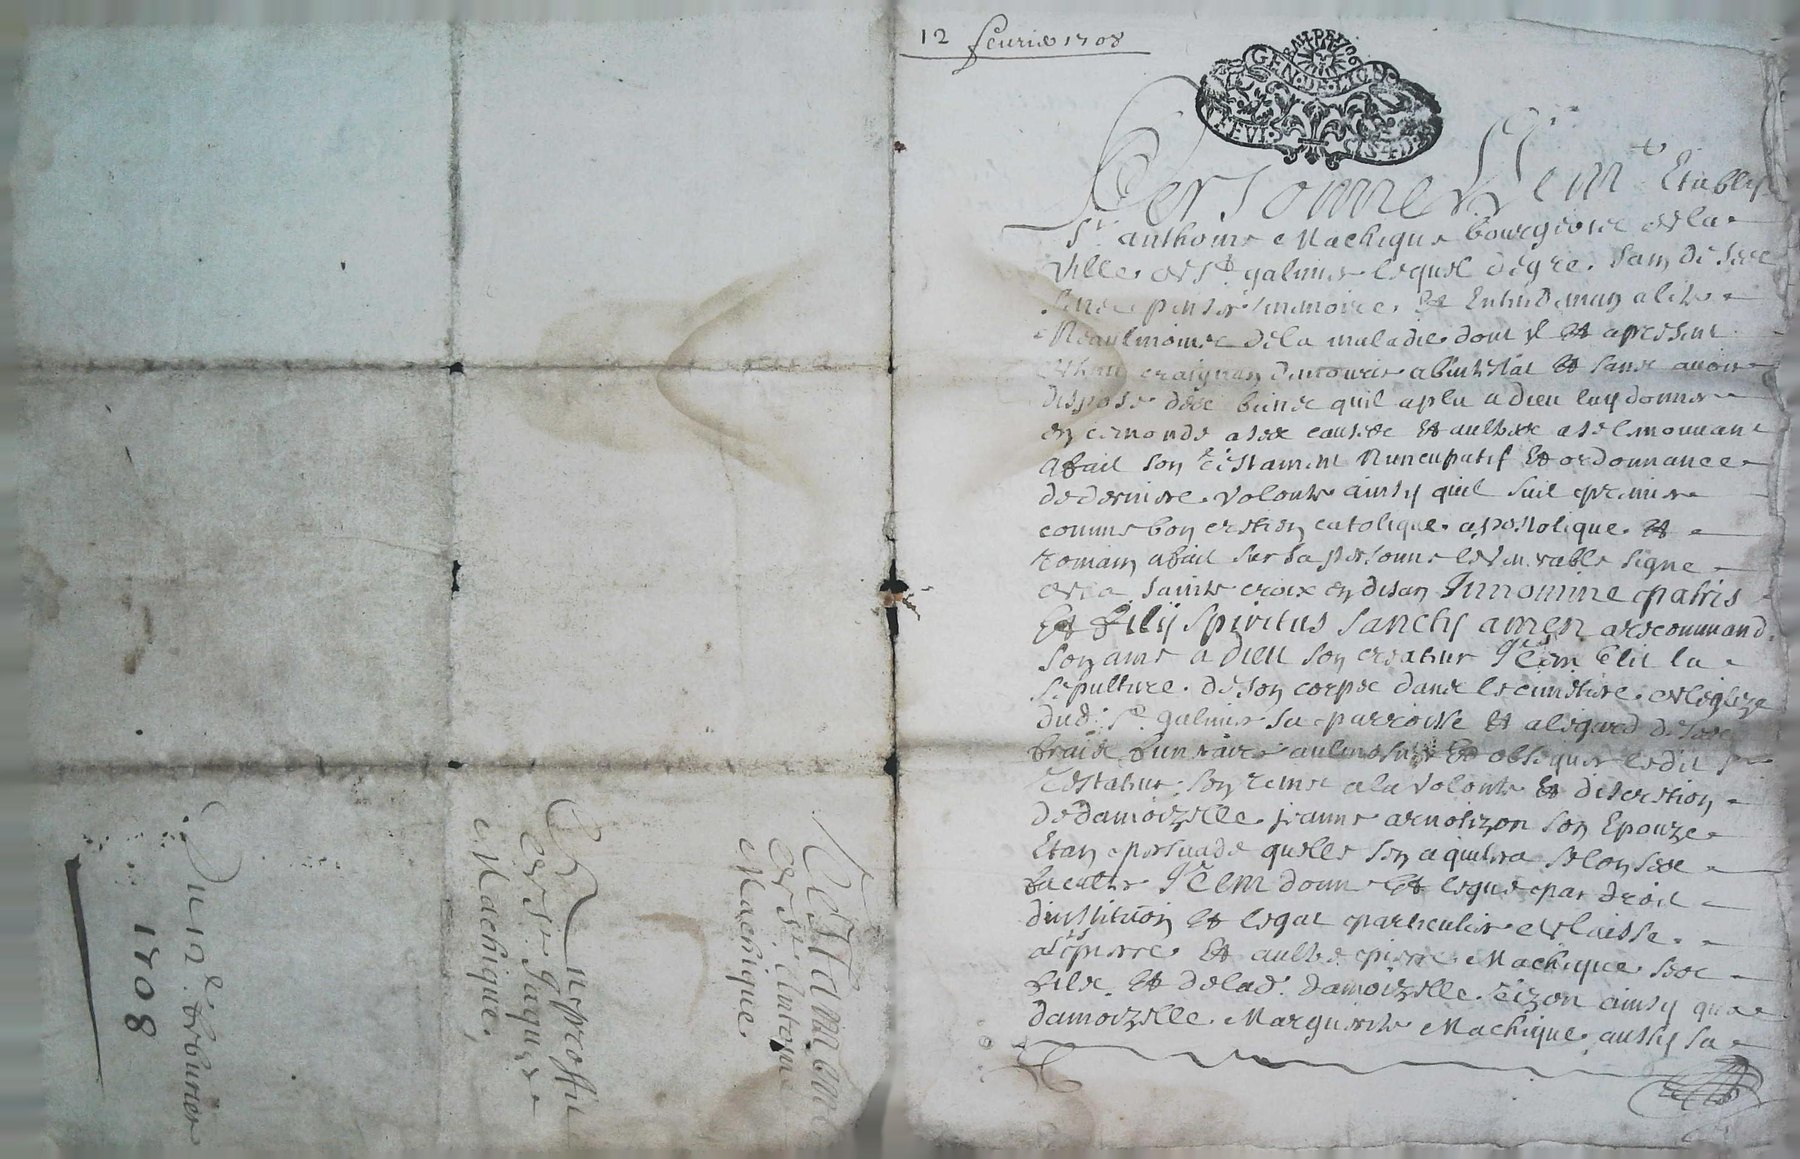 12 feurié 1708
GEN. DE LION
Personnellem.t Etably
S.r anthoine Machique bourgeois de la
ville de S.t galmier lequel de gré sain de ses
sens pensée memoire Et Entendeman alité
Neaulmoins de la maladie dont il Et apresent
craignan de mourir abintestat Et sans auoir
dispose des biens quil a plu a Dieu luy donner
en ce monde a ses causes Et aultres a se le mouuant
a fait son testament Nuncupatif Et ordonnance
de derniere volonte ainsy quil suit premier
comme bon crestien catolique apostolique Et
romain a fait sur sa personne le venerable signe
de la sainte croix en disan In nomine patris
Et filij spiritus sancty amen a recommandé
son ame a Dieu son createur It̃em Elit la
sepulture de son corps dans le cimetiere de leglize
dud. S.t galmier sa parroisse Et a legard de ses
frais funeraires aulmosnes Et obseques ledit s.r
testateur sen remet a la volonte Et discretion
de damoizelle jeanne arnolizon son Epouze
Etan persuadé quelle sen aquitera selon ses
facultés It̃em donne Et legue par droit
dinstitution Et legat particulier delaisse
a pierre Et aultre pierre Machique ses
fils Et de lad. damoizelle izon ainsy qua
damoizelle Marguerite Machique aussy sa
Testament
de s.r Antoine
Machique.
Au proffit
de s.r Jaque
Machique.
Du 12.e feburier
1708